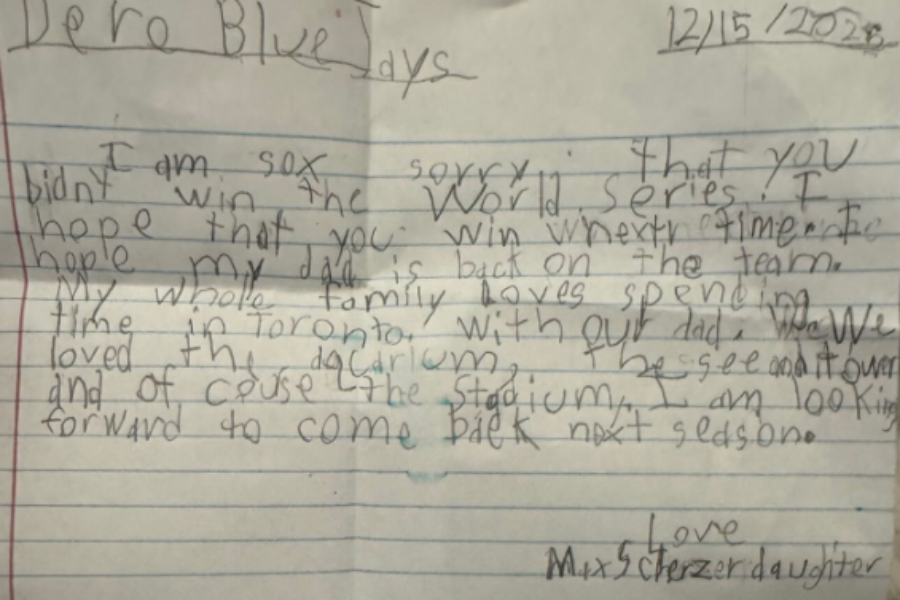 Dero Blue Jays
12/15/202
I am sox sorry that you
bidnt win the World series. I
hope that you win whextr time. I
hope my dad is back on the team.
My whole family Loves spending
time in Toronto. with our dad. We
loved the aqcarium, the see and it ower
and of couse the stadium. I am looking
forward to come back next season.
Love
Max Scherzer daughter